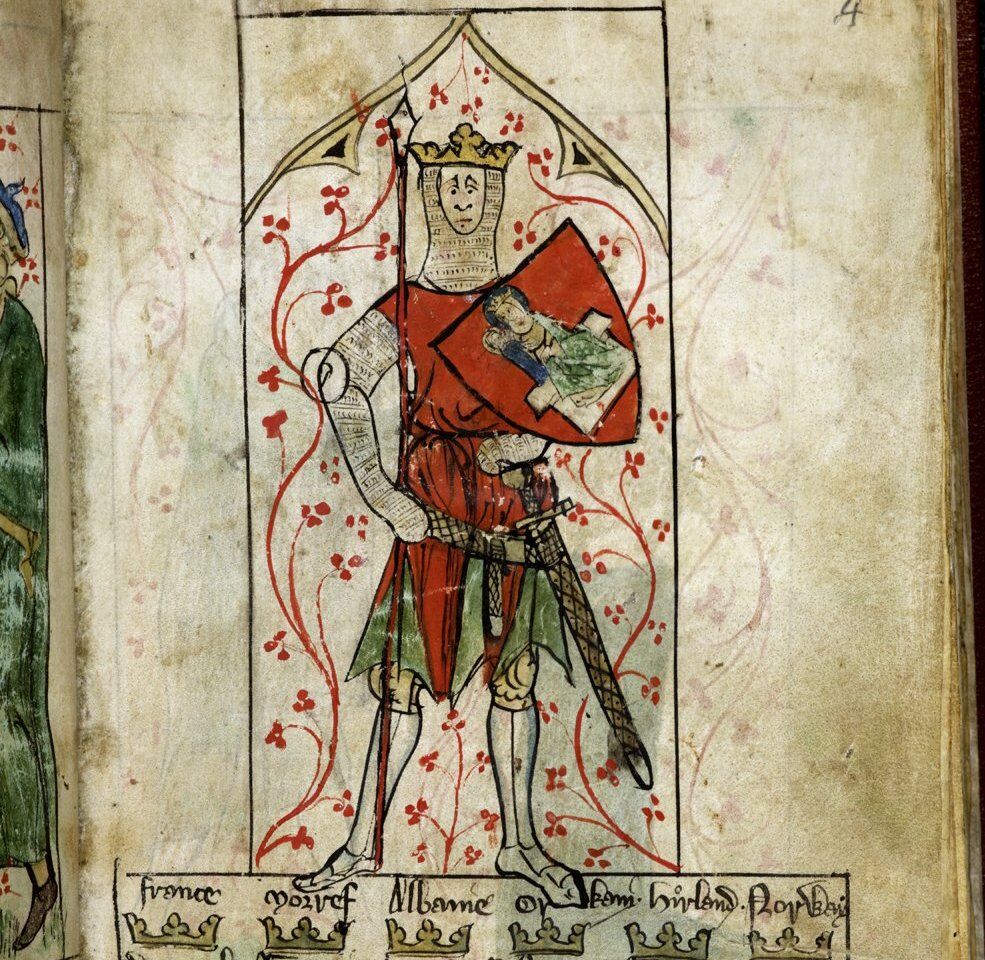 4
france Norref Albanie Or kani. hirland. Norway